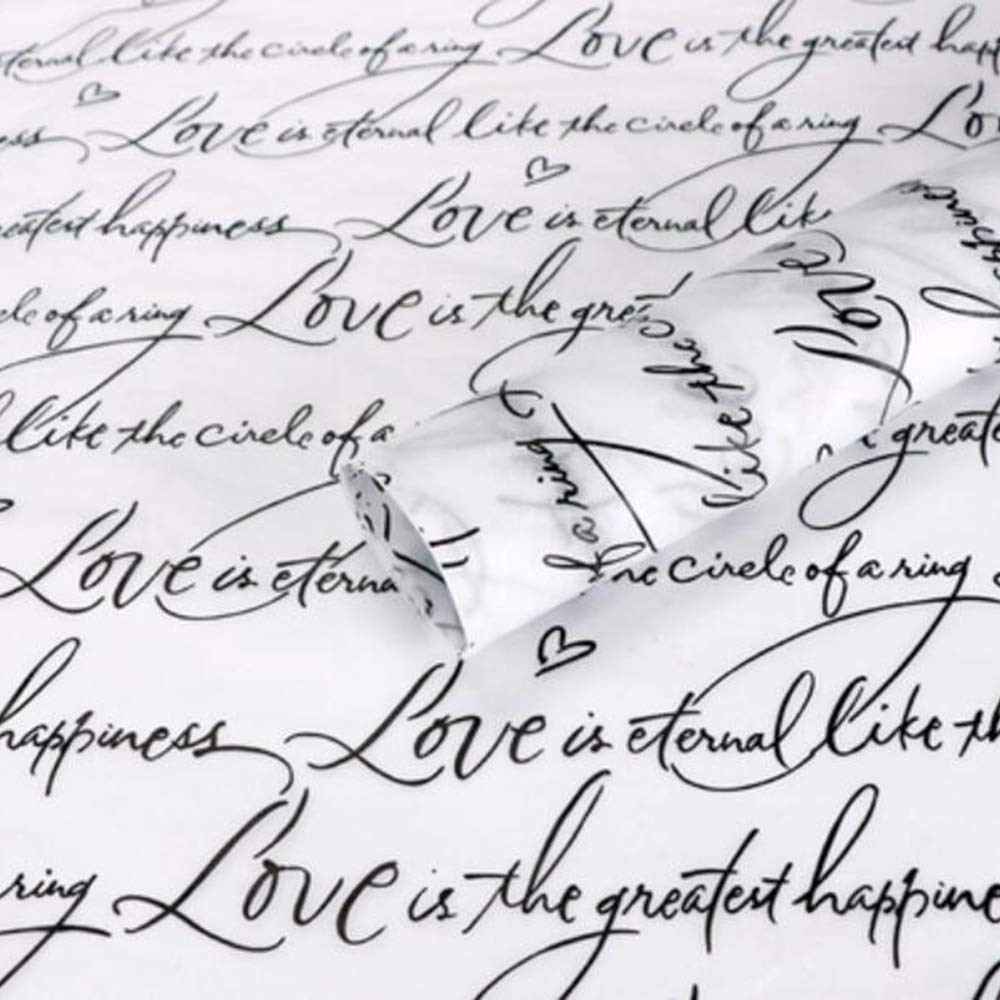 eternal like the circle of a ring Love is the greatest happ
ess Love is eternal like the circle of a ring Lo
eatest happiness Love is eternal lik
cle of a ring Love is the gre
like the
l like the circle of a
a ring
greate
Love is eterna
he circle of a ring
happiness Love is eternal like th
ring Love is the greatest happine